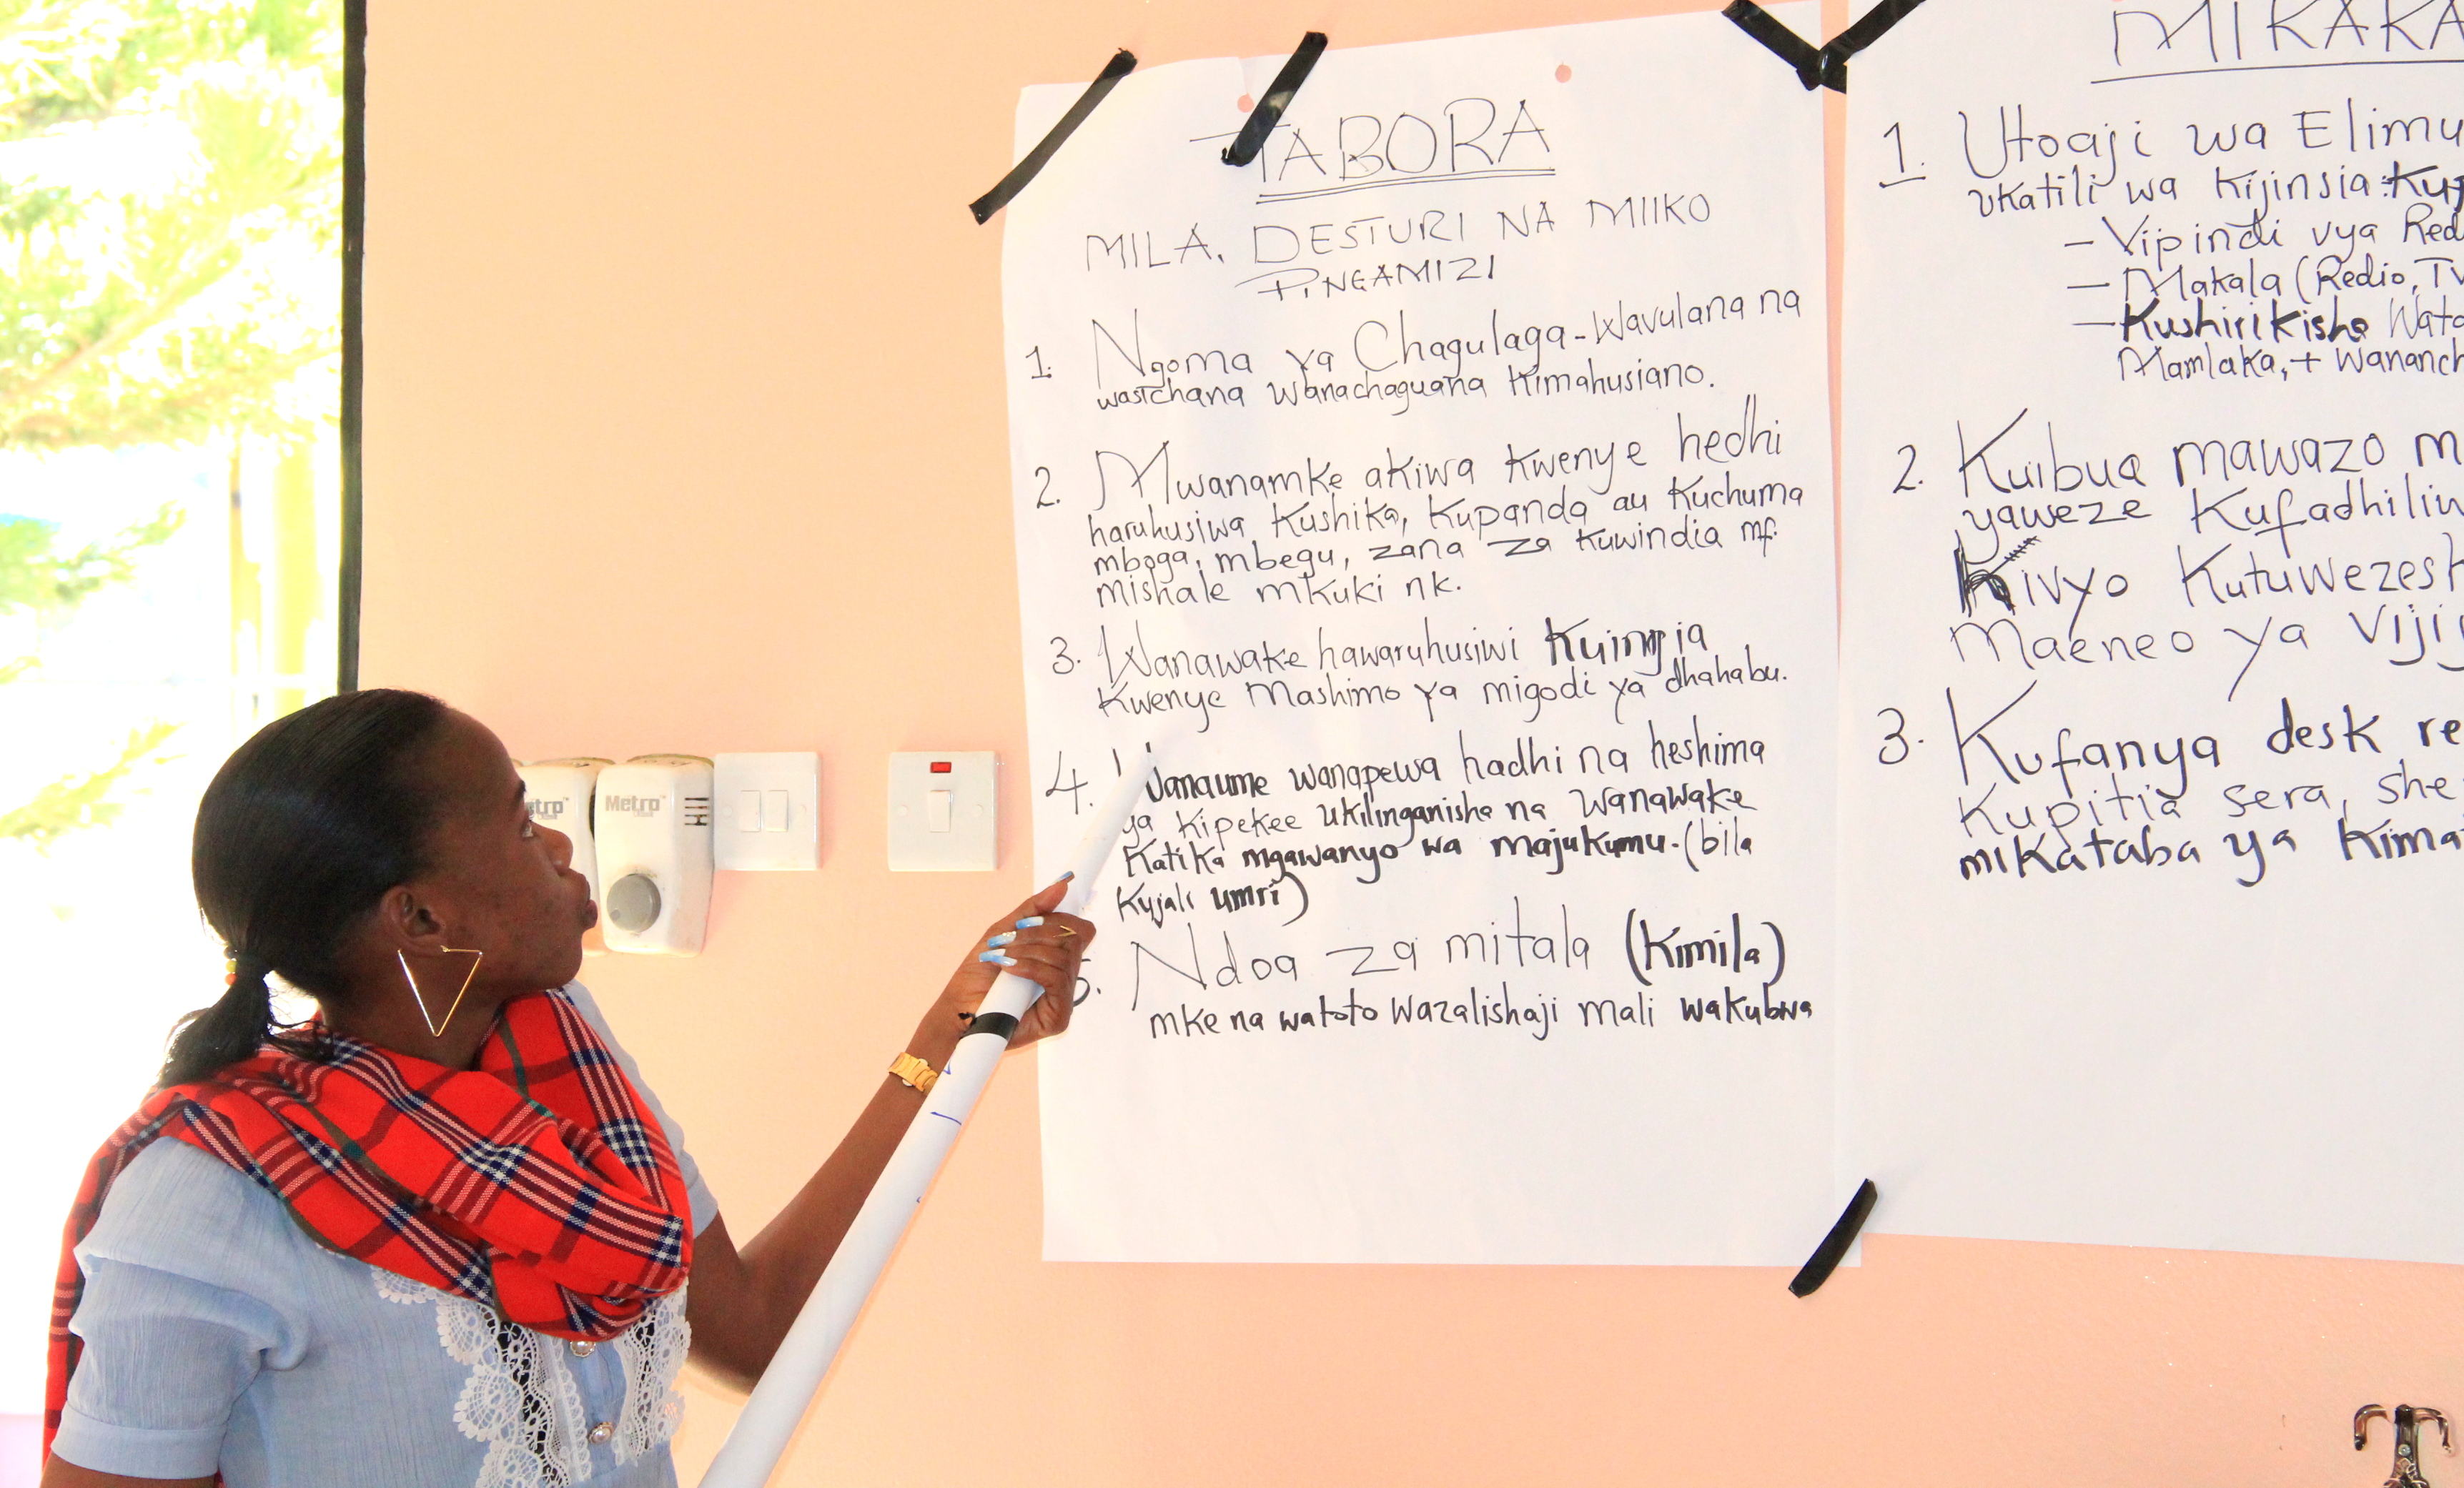 TABORA
MILA, DESTURI NA MIIKO
PINGAMIZI
1. Ngoma ya Chagulaga-Wavulana na
wasichana wanachaguana kimahusiano.
2. Mwanamke akiwa kwenye hedhi
haruhusiwa kushika, kupanda au kuchuma
mboga, mbegu, zana za kuwindia mf.
mishale mkuki nk.
3. Wanawake hawaruhusiwi kuingia
kwenye mashimo ya migodi ya dhahabu.
4. Wanaume wanapewa hadhi na heshima
ya kipekee ukilinganisha na wanawake
katika mgawanyo wa majukumu. (bila
kujali umri)
5. Ndoa za mitala (kimila)
mke na watoto wazalishaji mali wakubwa
MIKAKA
1. Utoaji wa Elimu
ukatili wa kijinsia:
- Vipindi vya Red
- Makala (Redio, Tv
- Kushirikisha Wata
Mamlaka, + wananch
2. Kuibua mawazo m
yaweze kufadhiliw
Kivyo kutuwezesh
Maeneo ya Vijij
3. Kufanya desk re
kupitia sera, she
mikataba ya kima
Metro